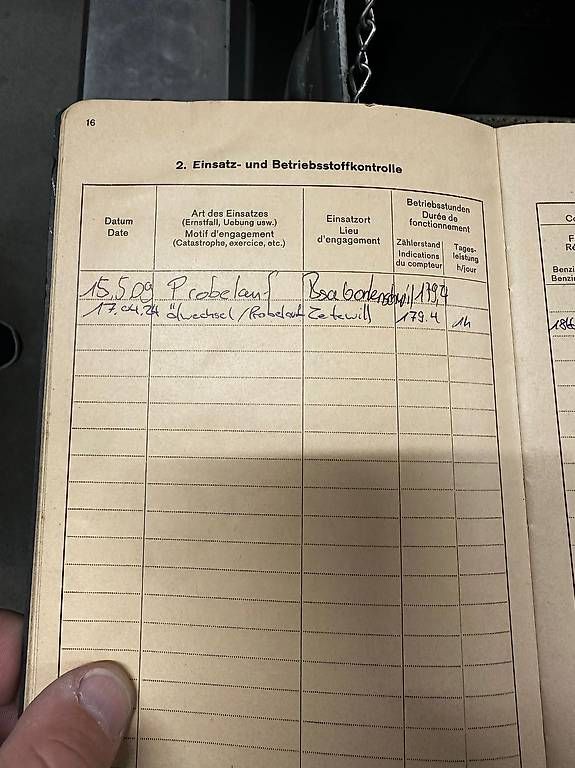 16
2. Einsatz- und Betriebsstoffkontrolle
Datum
Date
Art des Einsatzes
(Ernstfall, Uebung usw.)
Motif d'engagement
(Catastrophe, exercice, etc.)
Einsatzort
Lieu
d'engagement
Betriebsstunden
Durée de
fonctionnement
Zählerstand
Indications
du compteur
Tages-
leistung
h/jour
15.5.09 Probelauf 179,4
17.04.24 Ölwechsel/Probelauf 179.4 1h
Benzi
Benzi